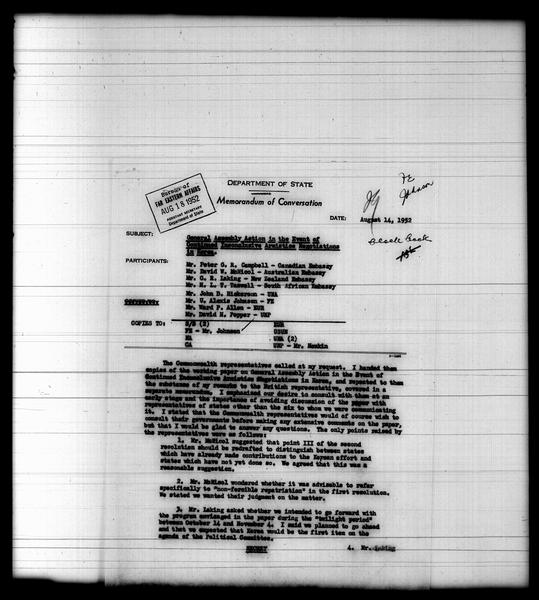 Bureau of
FAR EASTERN AFFAIRS
AUG 18 1952
ASSISTANT SECRETARY
Department of State
DEPARTMENT OF STATE
Memorandum of Conversation
FE
Johnson
DATE: August 14, 1952
Black Book
SUBJECT: General Assembly Action in the Event of
Continued Inconclusive Armistice Negotiations
in Korea.
PARTICIPANTS: Mr. Peter G. R. Campbell - Canadian Embassy
Mr. David W. McNicol - Australian Embassy
Mr. G. R. Laking - New Zealand Embassy
Mr. H. L. T. Taswell - South African Embassy
Mr. John D. Hickerson - UNA
Mr. U. Alexis Johnson - FE
Mr. Ward P. Allen - EUR
Mr. David H. Popper - UNP
COPIES TO: S/S (2) EUR
FE - Mr. Johnson USUN
NA UNA (2)
CA UNP - Mr. Henkin
The Commonwealth representatives called at my request. I handed them
copies of the working paper on General Assembly Action in the Event of
Continued Inconclusive Armistice Negotiations in Korea, and repeated to them
the substance of my remarks to the British representative, covered in a
separate memorandum. I emphasized our desire to consult with them at an
early stage and the importance of avoiding discussion of the paper with
representatives of states other than the six to whom we were communicating
it. I stated that the Commonwealth representatives would of course wish to
consult their governments before making any extensive comments on the paper,
but that I would be glad to answer any questions. The only points raised by
the representatives were as follows:
1. Mr. McNicol suggested that point III of the second
resolution should be redrafted to distinguish between states
which have already made contributions to the Korean effort and
states which have not yet done so. We agreed that this was a
reasonable suggestion.
2. Mr. McNicol wondered whether it was advisable to refer
specifically to "non-forcible repatriation" in the first resolution.
We stated we wanted their judgment on the matter.
3. Mr. Laking asked whether we intended to go forward with
the program envisaged in the paper during the "twilight period"
between October 14 and November 4. I said we planned to go ahead
and that we expected that Korea would be the first item on the
agenda of the Political Committee.
SECRET
4. Mr. Laking